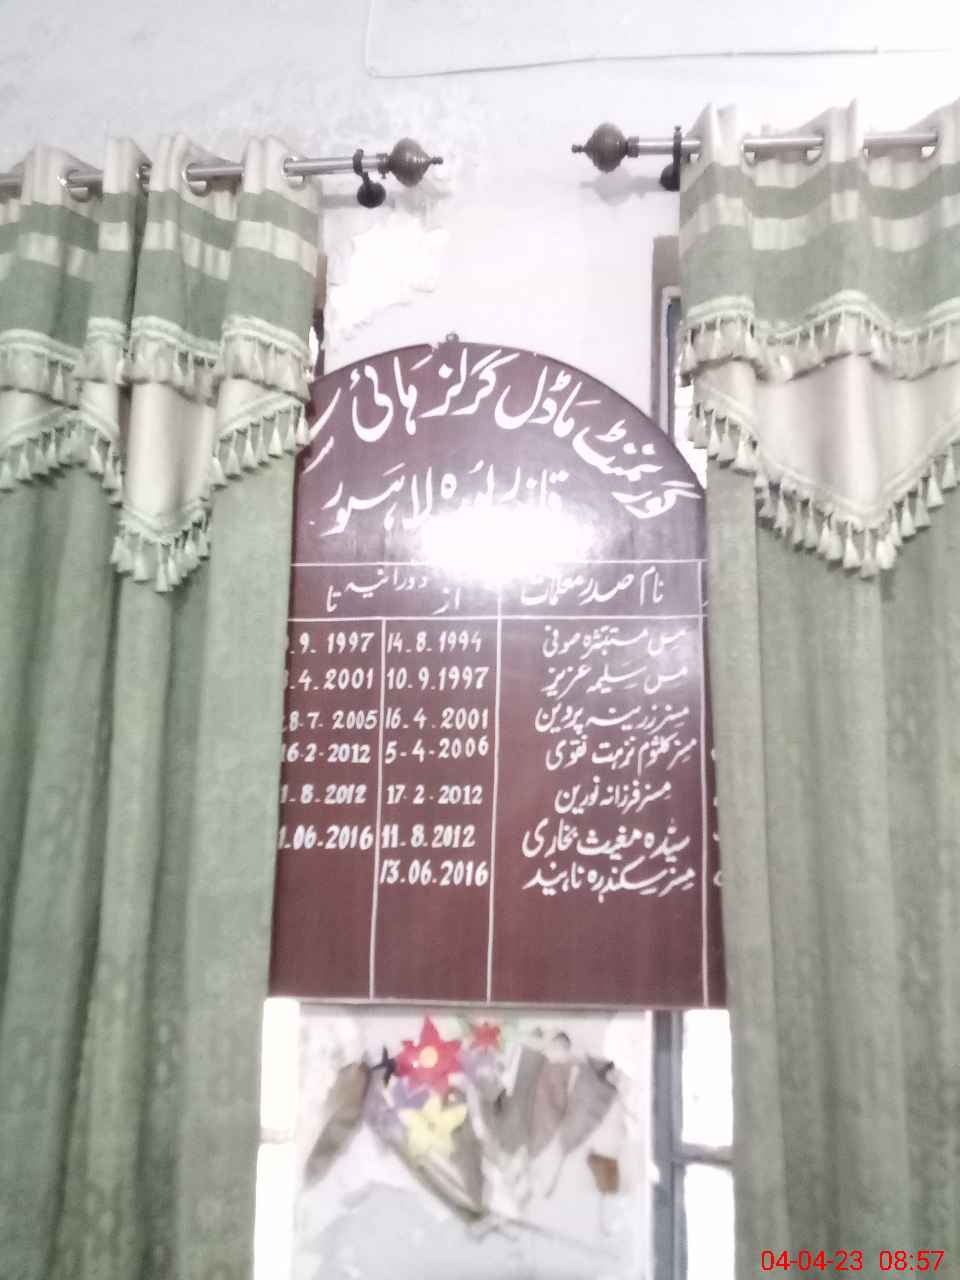 گورنمنٹ ماڈل گرلز ہائی
قلندر پورہ لاہور
نام صدر معلمات دورانیہ
از تا
مس مستبشرہ صوفی 14.8.1994 9.1997
مس سلیمہ عزیز 10.9.1997 4.2001
مسز زرینہ پروین 16.4.2001 8.7.2005
مسز کلثوم نزہت نقوی 5-4-2006 16-2-2012
مسز فرزانہ نورین 17.2.2012 8.2012
سیّدہ مغیث بخاری 11.8.2012 06.2016
مسز سکندرہ ناہید 13.06.2016
04-04-23 08:57